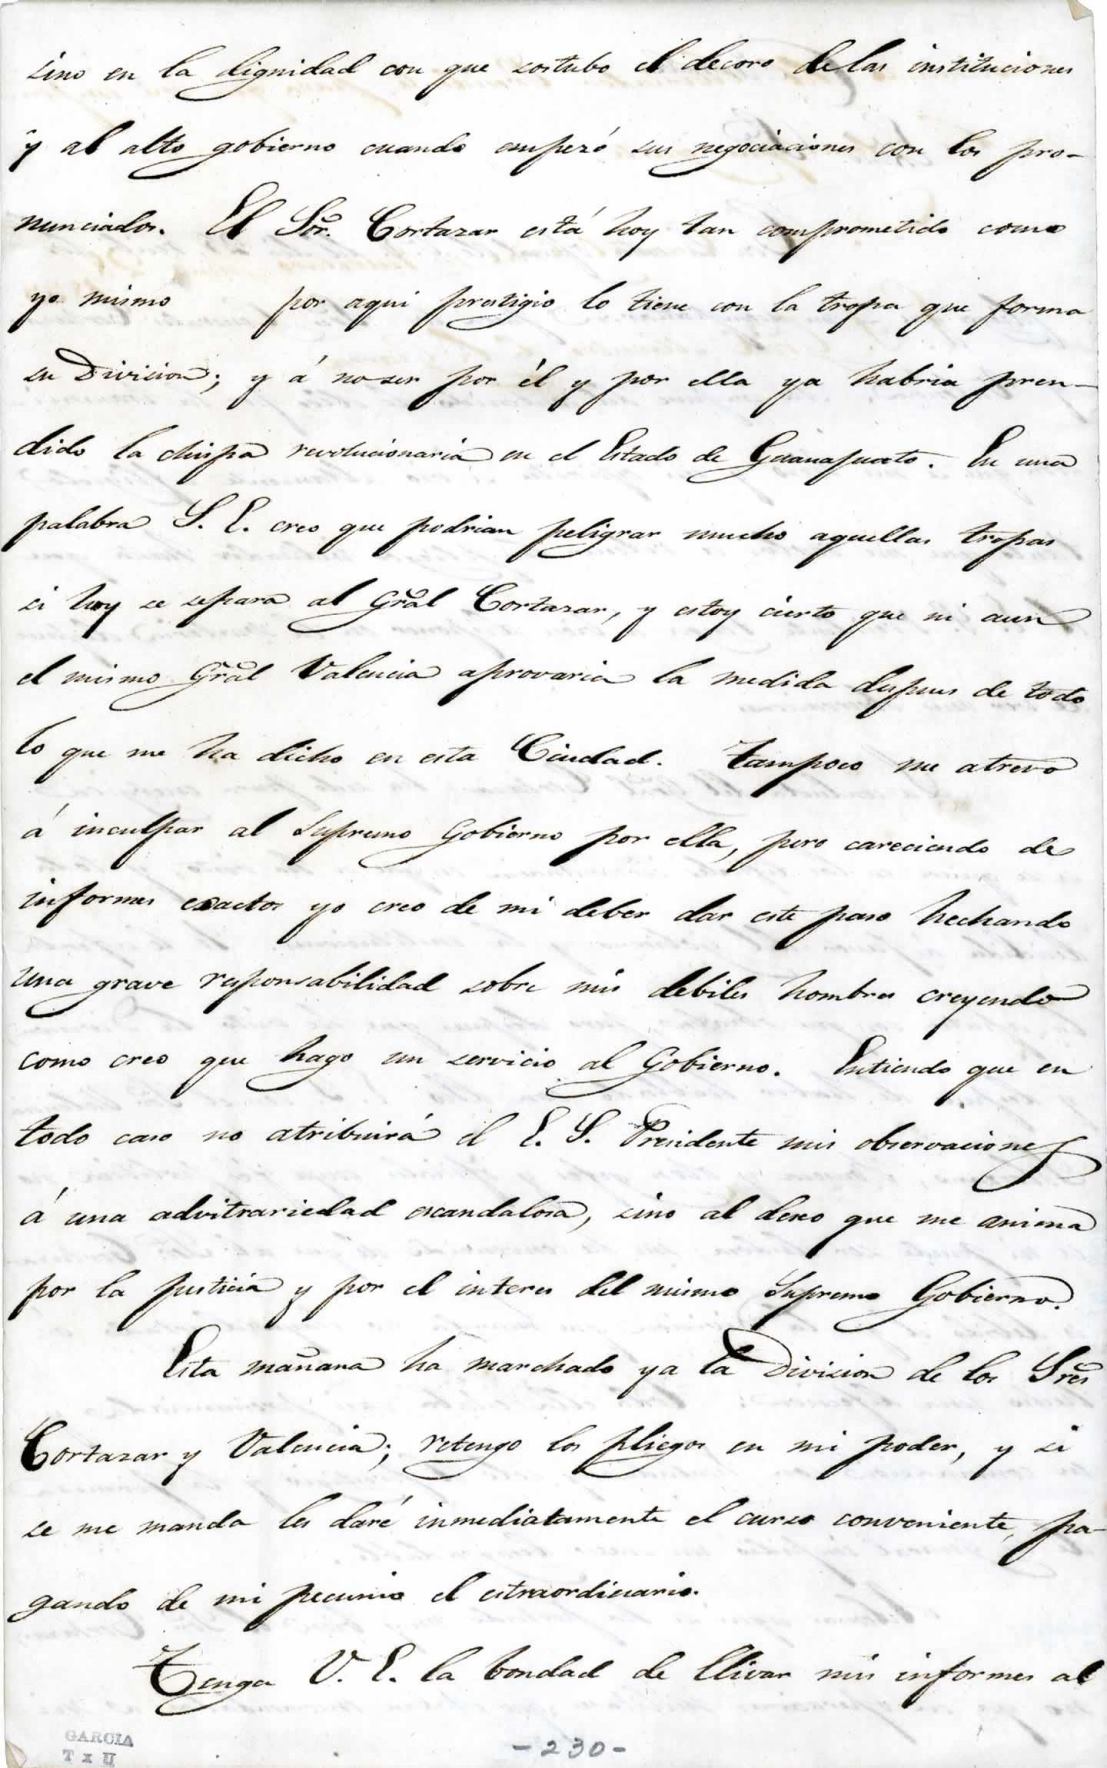 sino en la dignidad con que sostubo el decoro de las instituciones
y al alto gobierno cuando empezó sus negociaciones con los pro-
nunciados. El Sor. Cortazar está hoy tan comprometido como
yo mismo por aqui prestigio lo tiene con la tropa que forma
su Division; y á no ser por él y por ella ya habria pren-
dido la chispa revolucionaria en el Estado de Guanajuato. En una
palabra S. E. creo que podrian peligrar mucho aquellas tropas
si hoy se separa al Gral Cortazar, y estoy cierto que ni aun
el mismo Gral Valencia aprovaria la medida despues de todo
lo que me ha dicho en esta Ciudad. Tampoco me atrevo
á inculpar al Supremo Gobierno por ella, pero careciendo de
informes exactos yo creo de mi deber dar este paso hechando
una grave responsabilidad sobre mis debiles hombros creyendo
como creo que hago un servicio al Gobierno. Entiendo que en
todo caso no atribuirá el E. S. Presidente mis observaciones
á una advitrariedad escandalosa, sino al deseo que me anima
por la justicia y por el interes del mismo Supremo Gobierno.
Esta mañana ha marchado ya la Division de los Sres
Cortazar y Valencia; retengo los pliegos en mi poder, y si
se me manda les daré inmediatamente el curso conveniente, pa-
gando de mi pecunio el estraordinario.
Tenga V. E. la bondad de llivar mis informes al
GARCIA
T x II
-230-